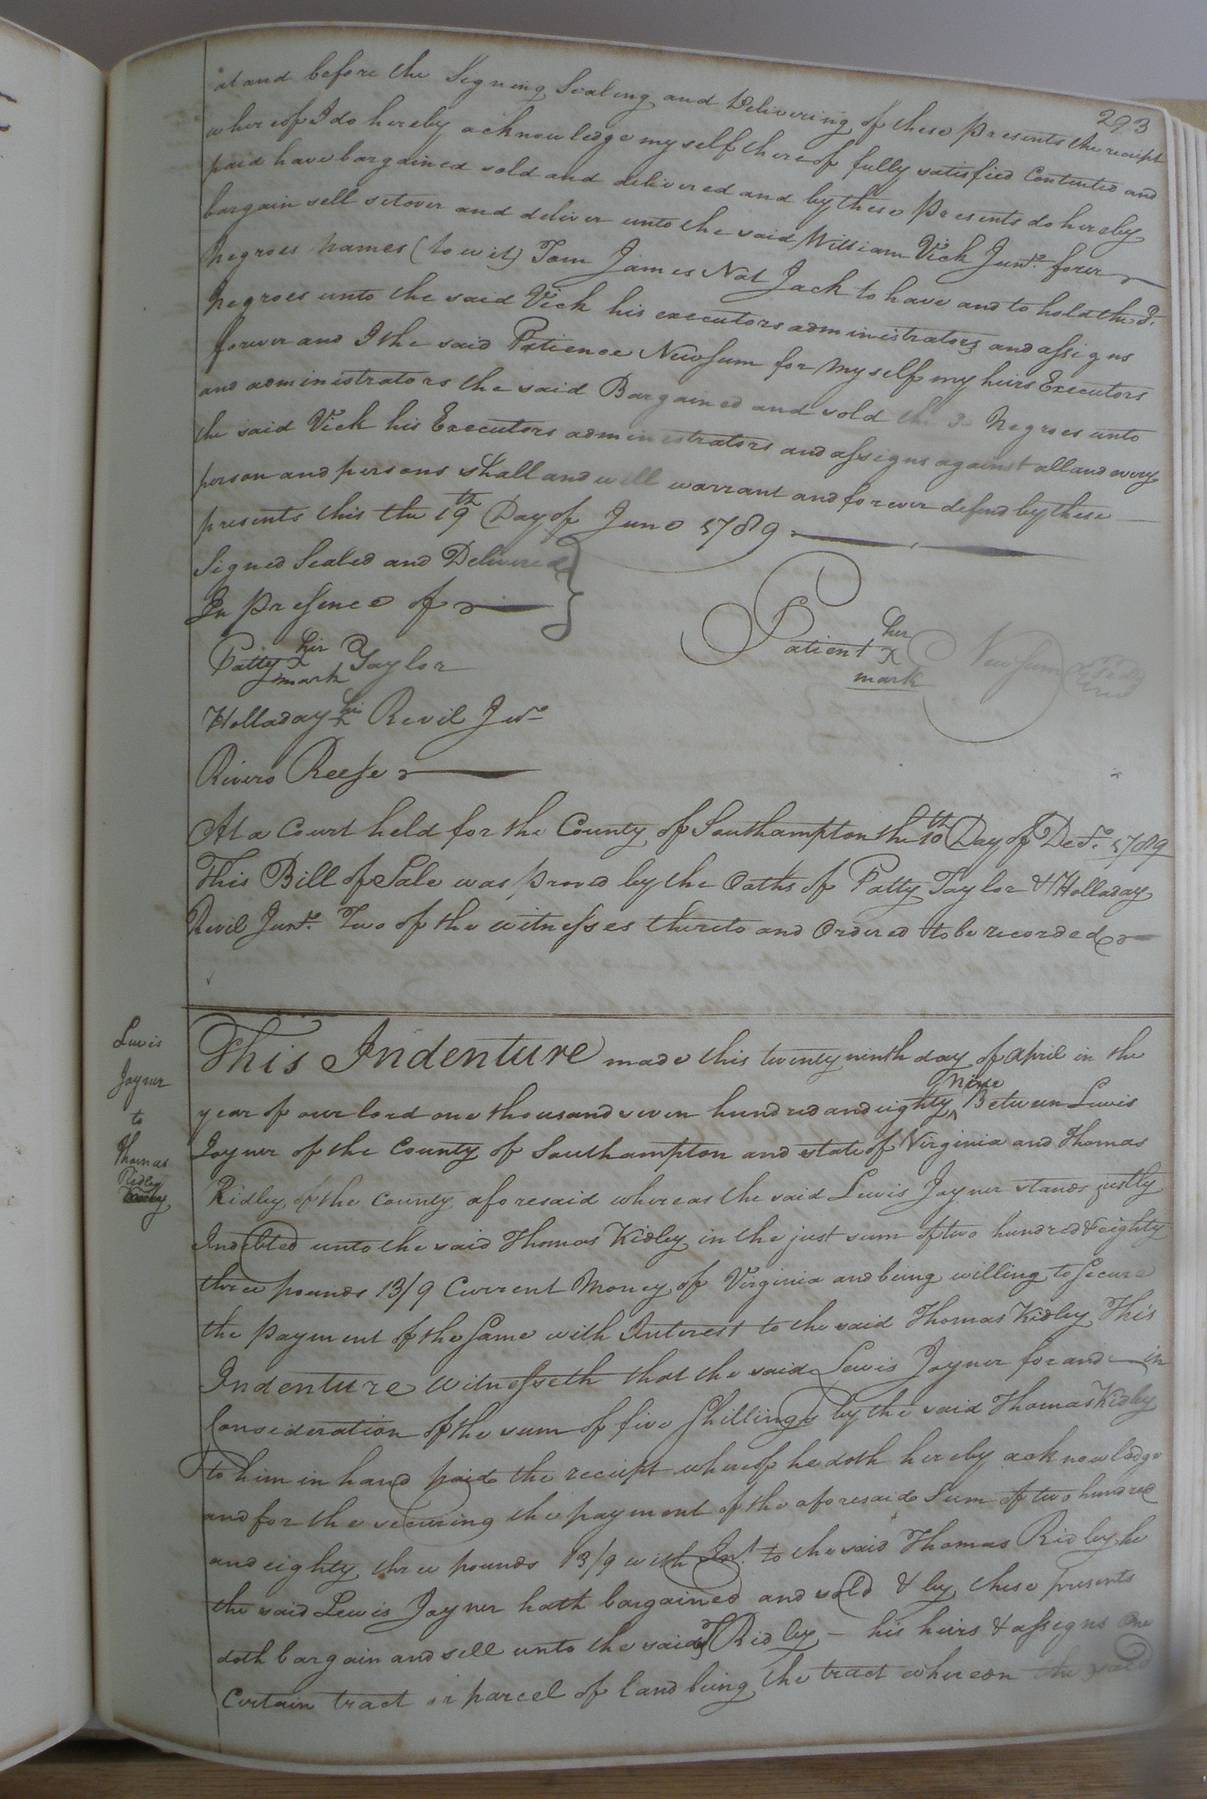 293
at and before the Signing Sealing and Delivering of these presents the receipt
whereof I do hereby acknowledge my self thereof fully satisfied Contented and
paid have bargained sold and delivered and by these presents do hereby
bargain sell setover and deliver unto the said William Vick Junr. forever
Negroes Names (to wit) Tom James Nat Jack to have and to hold the sd.
Negroes unto the said Vick his executors administrators and assigns
forever and I the said Patience Newsum for my self my heirs Executors
and administrators the said Bargained and sold the sd Negroes unto
the said Vick his Executors administrators and assigns against all and every
person and persons shall and will warrant and forever defend by these
presents this the 19th Day of June 1789
Signed Sealed and Delivered
In presence of
Patty her x mark Taylor
Patient her x mark Newsum
Holladay his x Revil Jur
Rivers Reese
At a Court held for the County of Southampton the 10th Day of Decr. 1789
This Bill of Sale was proved by the Oaths of Patty Taylor & Holladay
Revil Junr. Two of the witnesses thereto and Ordered to be recorded
Lewis
Joyner
to
Thomas
Ridley
This Indenture made this twenty ninth day of April in the
year of our lord one thousand seven hundred and eighty Nine Between Lewis
Joyner of the County of Southampton and state of Virginia and Thomas
Ridley of the County aforesaid whereas the said Lewis Joyner stands justly
Indebted unto the said Thomas Ridley in the just sum of two hundred & eighty
three pounds 13/9 Current Money of Virginia and being willing to Secure
the payment of the Same with Interest to the said Thomas Ridley This
Indenture Witnesseth that the said Lewis Joyner for and in
Consideration of the sum of five Shillings by the said Thomas Ridley
to him in hand paid the receipt whereof he doth hereby acknowledge
and for the securing the payment of the aforesaid Sum of two hundred
and eighty three pounds 13/9 with Int. to the said Thomas Ridley he
the said Lewis Joyner hath bargained and sold & by these presents
doth bargain and sell unto the said T Ridley - his heirs & assigns One
Certain tract or parcel of land being the tract whereon the said